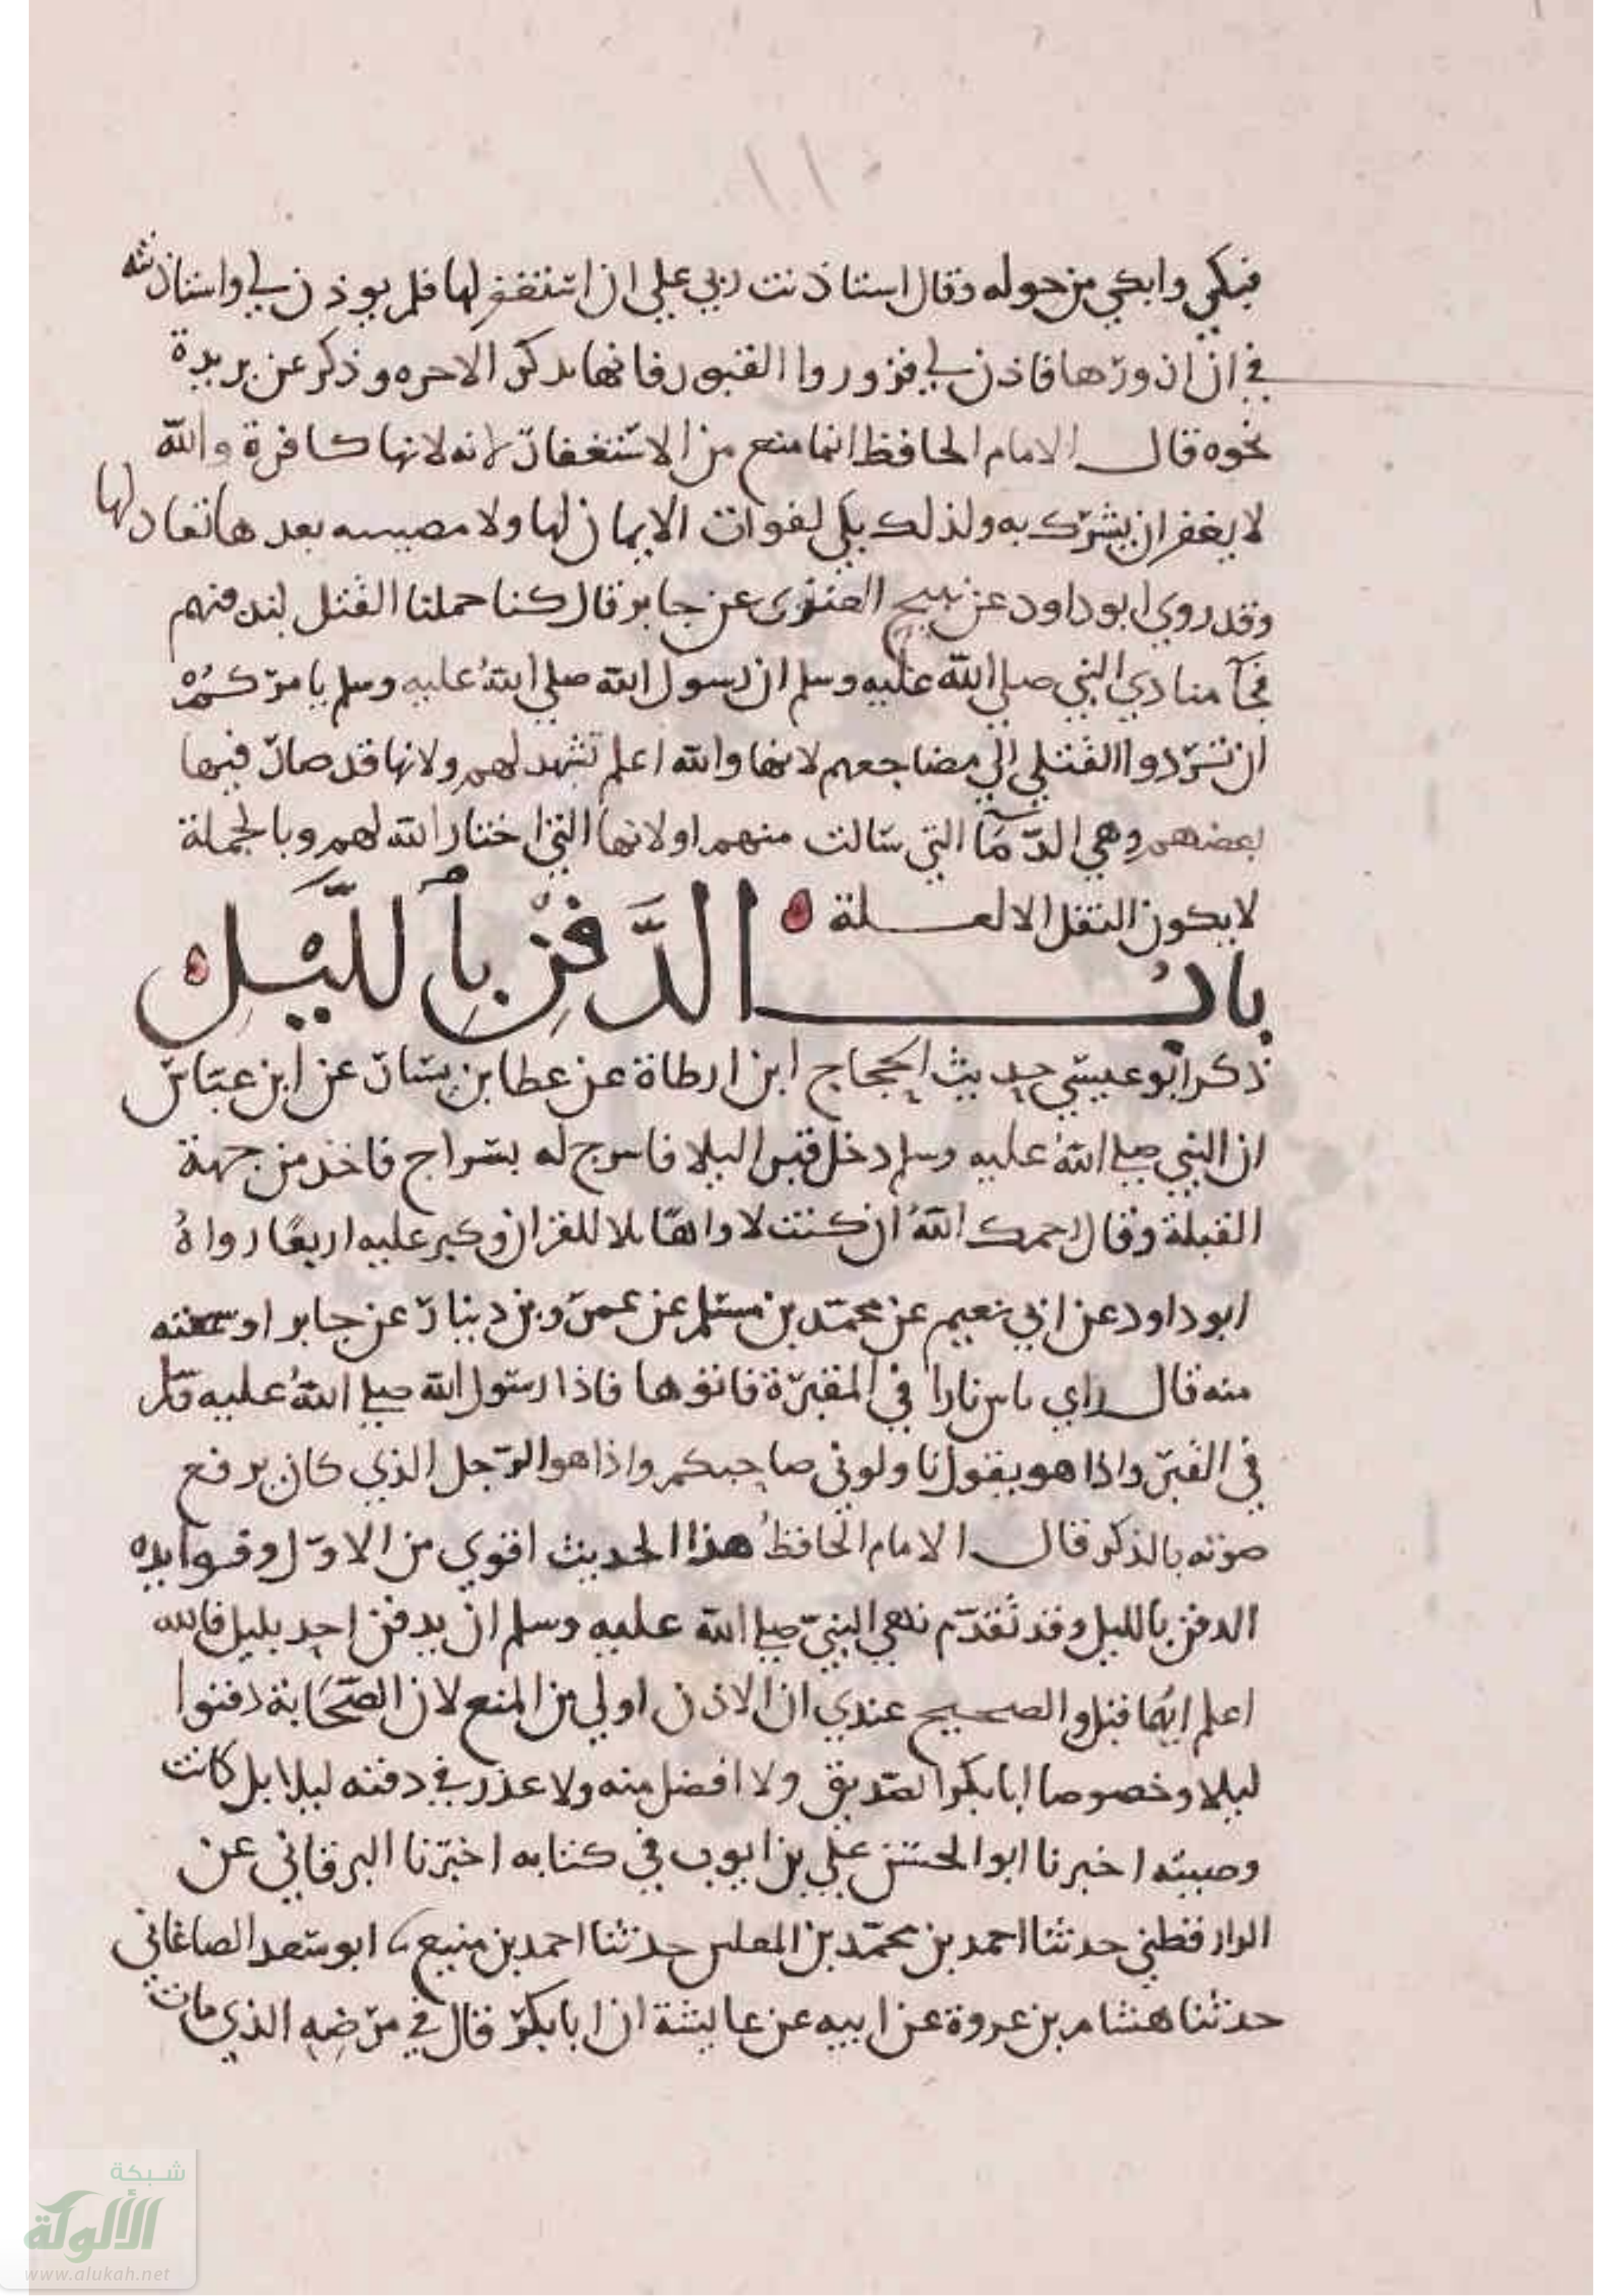 فبكي وابكي من حوله وقال استاذنت ربي علي ان استغفر لها فلم يوذن لي واستاذنته
في ان ازورها فاذن لي فزوروا القبور فانها تذكر الاخره وذكر عن بريدة
نحوه قال الامام الحافظ انما منع من الاستغفار لانه لانها كافرة والله
لا يغفر ان يشرك به ولذلك بكي لفوات الايمان لها ولا مصيبه بعدها تعادلها
وقد روي ابو داود عن نبيح العنزي عن جابر قال كنا حملنا القتل لندفنهم
فجآ منادي النبي صلي الله عليه وسلم ان رسول الله صلي الله عليه وسلم يامركم
ان تردوا القتلي الي مضاجعهم لانها والله اعلم تشهد لهم ولانها قد صار فيها
بعضهم وهي الدمآ التي سالت منهم او لانها التي اختار الله لهم وبالجملة
لا يكون النقل الا لعلة
باب الدَّفْنِ بِاللَّيْلِ
ذكر ابو عيسي حديث الحجاج ابن ارطاة عن عطا بن يسار عن ابن عباس
ان النبي صلي الله عليه وسلم دخل قبرا ليلا فاسرج له بسراج فاخذ من جهة
القبلة وقال رحمك الله ان كنت لاواها تلا للقران وكبر عليه اربعًا رواهُ
ابو داود عن ابي نعيم عن محمد بن مسلم عن عمرو بن دينار عن جابر او سمعته
منه قال راي ناس نارا في المقبرة فاتوها فاذا رسول الله صلي الله عليه وسلم
في القبر واذا هو يقول ناولوني صاحبكم واذا هو الرجل الذي كان يرفع
صوته بالذكر قال الامام الحافظ هذا الحديث اقوي من الاول وفوايده
الدفن بالليل وقد تقدّم نهي النبيّ صلي الله عليه وسلم ان يدفن احد بليل فالله
اعلم ايهما قبل والصحيح عندي ان الاذن اولي من المنع لان الصحابة دفنوا
ليلا وخصوصا ابا بكر الصديق ولا افضل منه ولا عذر في دفنه ليلا بل كانت
وصيته اخبرنا ابو الحسن علي بن ايوب في كتابه اخبرنا البرقاني عن
الدارقطني حدثنا احمد بن محمد بن المغلس حدثنا احمد بن منيع ابو سعد الصاغاني
حدثنا هشام بن عروة عن ابيه عن عايشة ان ابا بكر قال في مرضه الذي مات
شبكة
الألوكة
www.alukah.net